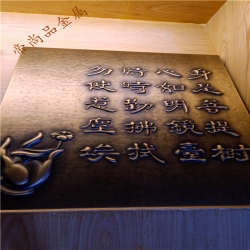 身是菩提樹
心如明鏡臺
時時勤拂拭
勿使惹塵埃
帝尚品金属